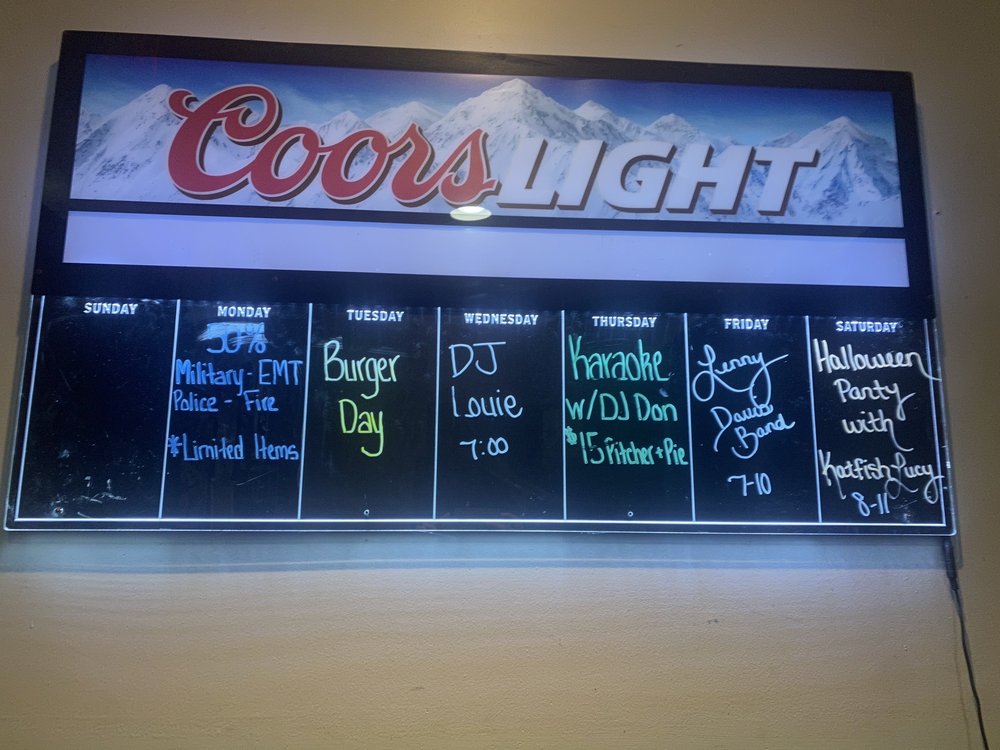 Coors LIGHT
SUNDAY
MONDAY
50%
Military - EMT
Police - Fire
*Limited Items
TUESDAY
Burger
Day
WEDNESDAY
DJ
Louie
7:00
THURSDAY
Karaoke
w/DJ Don
$15 Pitcher + Pie
FRIDAY
Lenny
Davis
Band
7-10
SATURDAY
Halloween
Party
with
Katfish Lucy
8-11